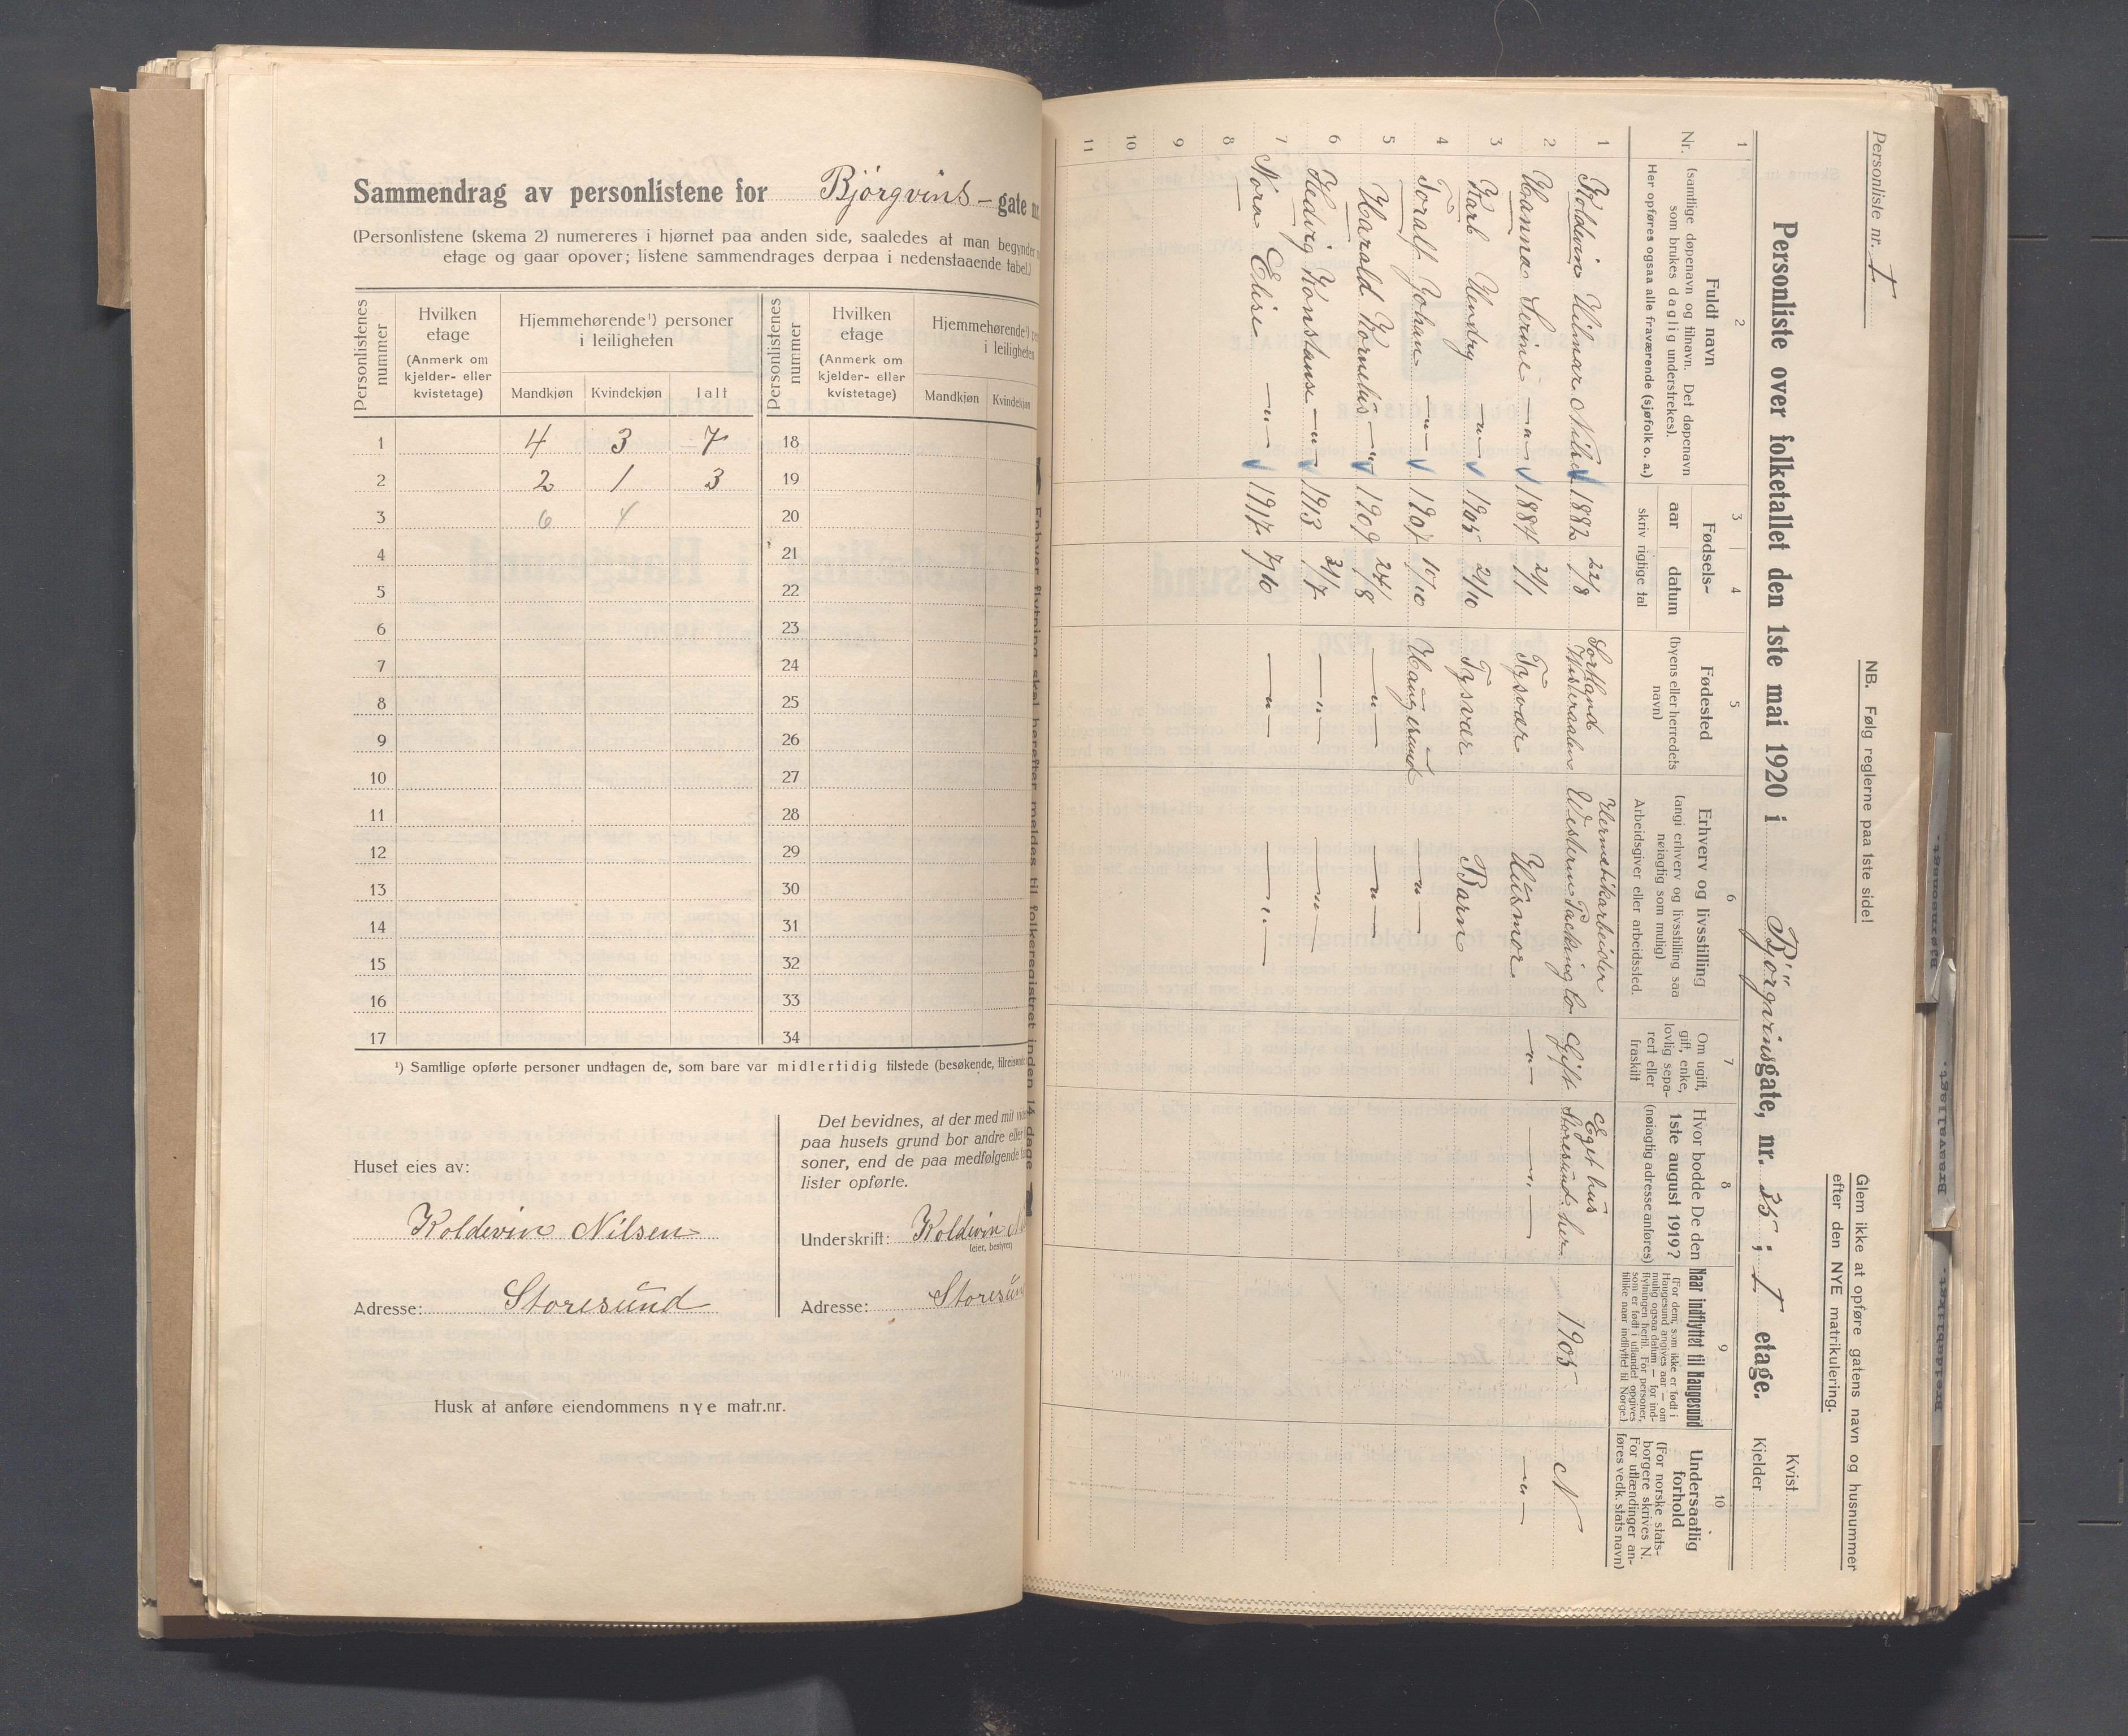 Sammendrag av personlistene for Bjørgvins- gate nr.
(Personlistene (skema 2) numereres i hjørnet paa anden side, saaledes at man begynder
etage og gaar opover; listene sammendrages derpaa i nedenstaaende tabel.)
Personlistenes nummer
Hvilken etage
(Anmerk om kjelder- eller kvistetage)
Hjemmehørende¹) personer i leiligheten
Mandkjøn Kvindekjøn Ialt
Personlistenes nummer
Hvilken etage
(Anmerk om kjelder- eller kvistetage)
Hjemmehørende¹)
i leiligheten
Mandkjøn Kvindekjøn
1 4 3 7 18
2 2 1 3 19
3 6 4 20
4 21
5 22
6 23
7 24
8 25
9 26
10 27
11 28
12 29
13 30
14 31
15 32
16 33
17 34
¹) Samtlige opførte personer undtagen de, som bare var midlertidig tilstede (besøkende, tilreisende
Huset eies av:
Koldevin Nilsen
Adresse: Storesund
Det bevidnes, at der med mit
paa husets grund bor andre eller
soner, end de paa medfølgende
lister opførte.
Underskrift: Koldevin
(eier, bestyrer)
Adresse: Storesun
Husk at anføre eiendommens nye matr.nr.
Enhver flytning skal herefter meldes til folkeregistret inden 14 dage
Personliste nr. 1
NB. Følg reglerne paa 1ste side!
Glem ikke at opføre gatens navn og husnummer
efter den NYE matrikulering.
Personliste over folketallet den 1ste mai 1920 i Bjørgvinsgate, nr. 35; 1 etage.
Kvist
Kjelder
1 2 3 4 5 6 7 8 9 10
Nr.
Fuldt navn
(samtlige døpenavn og tilnavn. Det døpenavn
som brukes daglig understrekes).
Her opføres ogsaa alle fraværende (sjøfolk o. a.)
Fødsels-
aar datum
skriv rigtige tal
Fødested
(byens eller herredets
navn)
Erhverv og livsstilling
(angi erhverv og livsstilling saa
nøiagtig som mulig)
Arbeidsgiver eller arbeidssted.
Om ugift,
gift, enke,
lovlig sepa-
rert eller
fraskilt
Hvor bodde De den
1ste august 1919?
(nøiagtig adresse anføres)
Naar indflyttet til Haugesund
(For dem, som ikke er født i
Haugesund angives aar — om
mulig ogsaa datum — for ind-
flytningen hertil. For personer,
som er født i utlandet opgives
tillike naar indflyttet til Norge.)
Undersaatlig
forhold
(For norske stats-
borgere skrives N.
For utlændinger an-
føres vedk. stats navn)
1 Koldevin Hilmar Nilsen 1882 22/8 Sortland Westeraalen Hermetikarbeider Western Packing Co Gift Eget hus Storesund her 1905 N
2 Hanna Serine —"— 1884 2/1 Tysvær Husmor —"— —"— —"—
3 Karl Hendry —"— 1905 2/10 Tysvær Barn
4 Toralf Johan —"— 1907 10/10 Haugesund —"—
5 Harald Kornelius —"— 1909 24/8 —"— —"—
6 Hedvig Konstanse —"— 1913 31/7 —"— —"—
7 Nora Elise —"— 1917 7/10 —"— —"—
8
9
10
11
Bjørnsonsgt.
Braavallagt.
Breidablikgt.